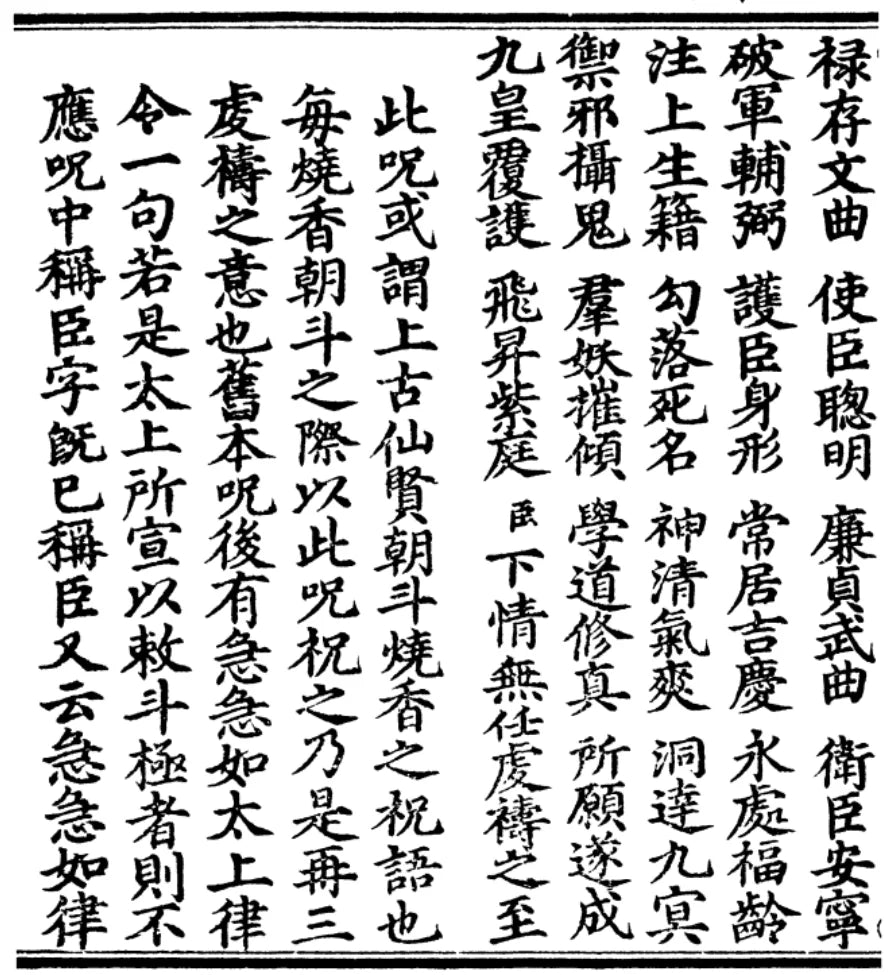 禄存文曲 使臣聰明 廉貞武曲 衛臣安寧
破軍輔弼 護臣身形 常居吉慶 永處福齡
注上生籍 勾落死名 神清氣爽 洞達九冥
禦邪攝鬼 羣妖摧傾 學道修真 所願遂成
九皇覆護 飛昇紫庭 臣下情無任虔禱之至
此呪或謂上古仙賢朝斗燒香之祝語也
每燒香朝斗之際以此呪祝之乃是再三
虔禱之意也舊本呪後有急急如太上律
令一句若是太上所宣以敕斗極者則不
應呪中稱臣字既已稱臣又云急急如律